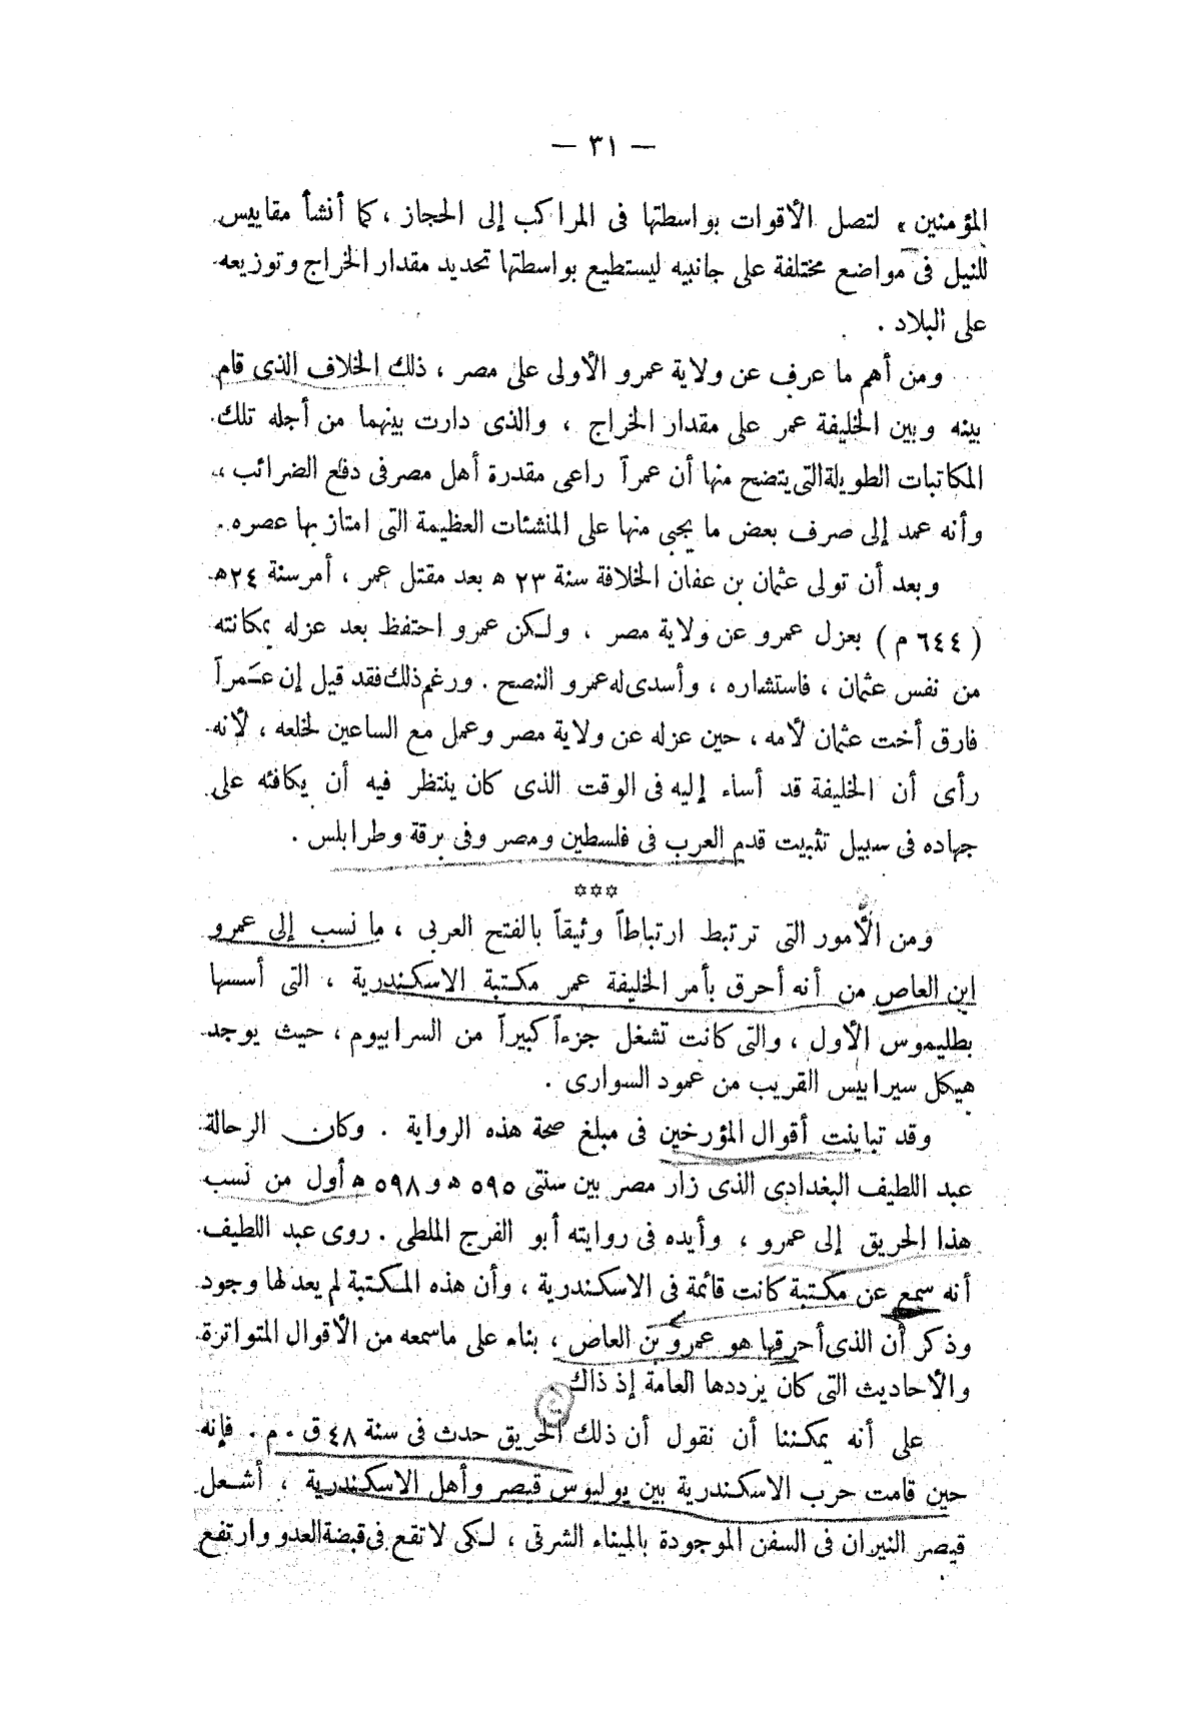 — ٣١ —
المؤمنين » لتصل الأقوات بواسطتها فى المراكب إلى الحجاز ، كما أنشأ مقاييس
للنيل فى مواضع مختلفة على جانبيه ليستطيع بواسطتها تحديد مقدار الخراج وتوزيعه
على البلاد .
ومن أهم ما عرف عن ولاية عمرو الأولى على مصر ، ذلك الخلاف الذى قام
بينه وبين الخليفة عمر على مقدار الخراج ، والذى دارت بينهما من أجله تلك
المكاتبات الطويلة التى يتضح منها أن عمراً راعى مقدرة أهل مصر فى دفع الضرائب ،
وأنه عمد إلى صرف بعض ما يجبى منها على المنشئات العظيمة التى امتاز بها عصره .
وبعد أن تولى عثمان بن عفان الخلافة سنة ٢٣ ه بعد مقتل عمر ، أمر سنة ٢٤ ه
( ٦٤٤ م ) بعزل عمرو عن ولاية مصر ، ولكن عمرو احتفظ بعد عزله بمكانته
من نفس عثمان ، فاستشاره ، وأسدى له عمرو النصح . ورغم ذلك فقد قيل إن عَمراً
فارق أخت عثمان لأمه ، حين عزله عن ولاية مصر وعمل مع الساعين لخلعه ، لأنه
رأى أن الخليفة قد أساء إليه فى الوقت الذى كان ينتظر فيه أن يكافئه على
جهاده فى سبيل تثبيت قدم العرب فى فلسطين ومصر وفى برقة وطرابلس .
✡✡✡
ومن الأمور التى ترتبط ارتباطاً وثيقاً بالفتح العربى ، ما نسب إلى عمرو
ابن العاص من أنه أحرق بأمر الخليفة عمر مكتبة الاسكندرية ، التى أسسها
بطليموس الأول ، والتى كانت تشغل جزءاً كبيراً من السرابيوم ، حيث يوجد
هيكل سيرابيس القريب من عمود السوارى .
وقد تباينت أقوال المؤرخين فى مبلغ صحة هذه الرواية . وكان الرحالة
عبد اللطيف البغدادى الذى زار مصر بين سنتى ٥٩٥ ه و ٥٩٨ ه أول من نسب
هذا الحريق إلى عمرو ، وأيده فى روايته أبو الفرج الملطى . روى عبد اللطيف
أنه سمع عن مكتبة كانت قائمة فى الاسكندرية ، وأن هذه المكتبة لم يعد لها وجود
وذكر أن الذى أحرقها هو عمرو بن العاص ، بناء على ما سمعه من الأقوال المتواترة
والأحاديث التى كان يرددها العامة إذ ذاك .
على أنه يمكننا أن نقول أن ذلك الحريق حدث فى سنة ٤٨ ق . م . فإنه
حين قامت حرب الاسكندرية بين يوليوس قيصر وأهل الاسكندرية ، أشعل
قيصر النيران فى السفن الموجودة بالميناء الشرقى ، لكى لا تقع فى قبضة العدو وارتفع